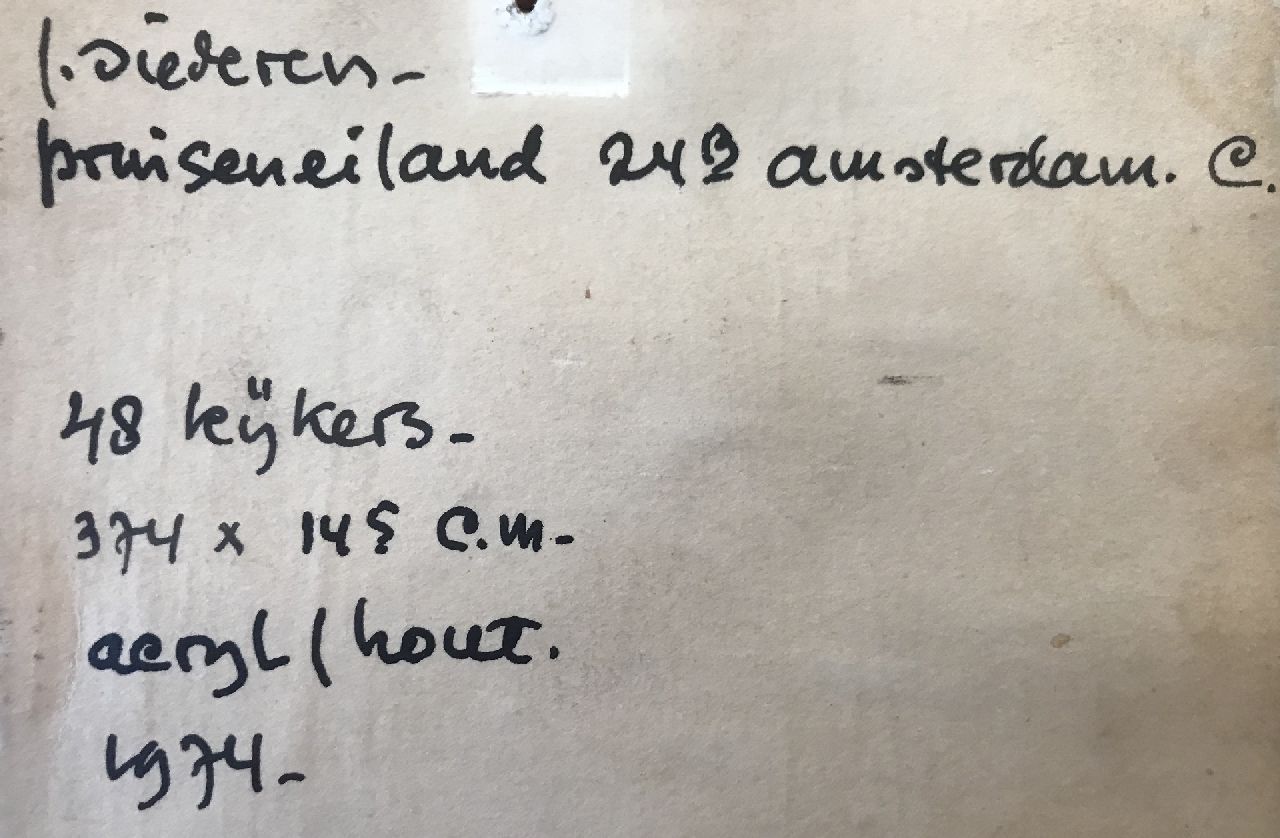 J. Siederen -
prinseneiland 249 amsterdam. C.
48 kijkers -
374 x 145 c.m. -
acryl / hout.
1974 -